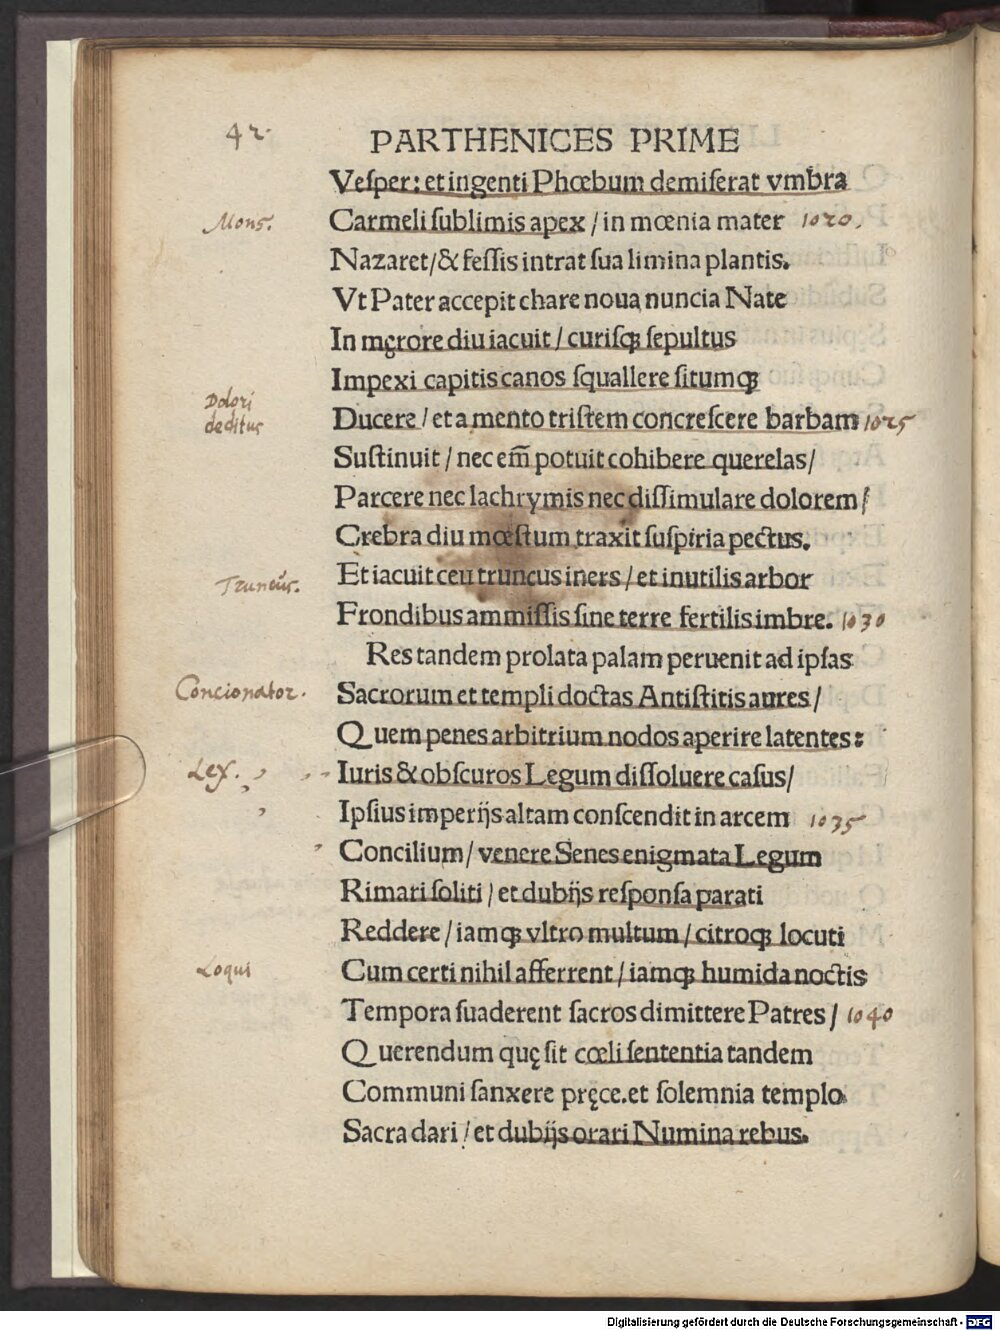 42.
PARTHENICES PRIME
Veſper: et ingenti Phœbum demiſerat vmbra
Mons. Carmeli ſublimis apex / in mœnia mater 1020.
Nazaret / & feſſis intrat ſua limina plantis.
Vt Pater accepit chare noua nuncia Nate
In męrore diu iacuit / curiſqꝫ ſepultus
Impexi capitis canos ſquallere ſitumqꝫ
Dolori deditus Ducere / et a mento triſtem concreſcere barbam 1025
Suſtinuit / nec em̄ potuit cohibere querelas /
Parcere nec lachrymis nec diſſimulare dolorem /
Crebra diu mœſtum traxit ſuſpiria pectus.
Truncus. Et iacuit ceu truncus iners / et inutilis arbor
Frondibus ammiſſis ſine terre fertilis imbre. 1030
Res tandem prolata palam peruenit ad ipſas
Concionator. Sacrorum et templi doctas Antiſtitis aures /
Quem penes arbitrium nodos aperire latentes:
Lex. Iuris & obſcuros Legum diſſoluere caſus /
Ipſius imperijs altam conſcendit in arcem 1035
Concilium / venere Senes enigmata Legum
Rimari ſoliti / et dubijs reſponſa parati
Reddere / iamqꝫ vltro multum / citroqꝫ locuti
Loqui Cum certi nihil afferrent / iamqꝫ humida noctis
Tempora ſuaderent ſacros dimittere Patres / 1040
Querendum quę ſit cœli ſententia tandem
Communi ſanxere pręce. et ſolemnia templo
Sacra dari / et dubijs orari Numina rebus.
Digitalisierung gefördert durch die Deutsche Forschungsgemeinschaft - DFG